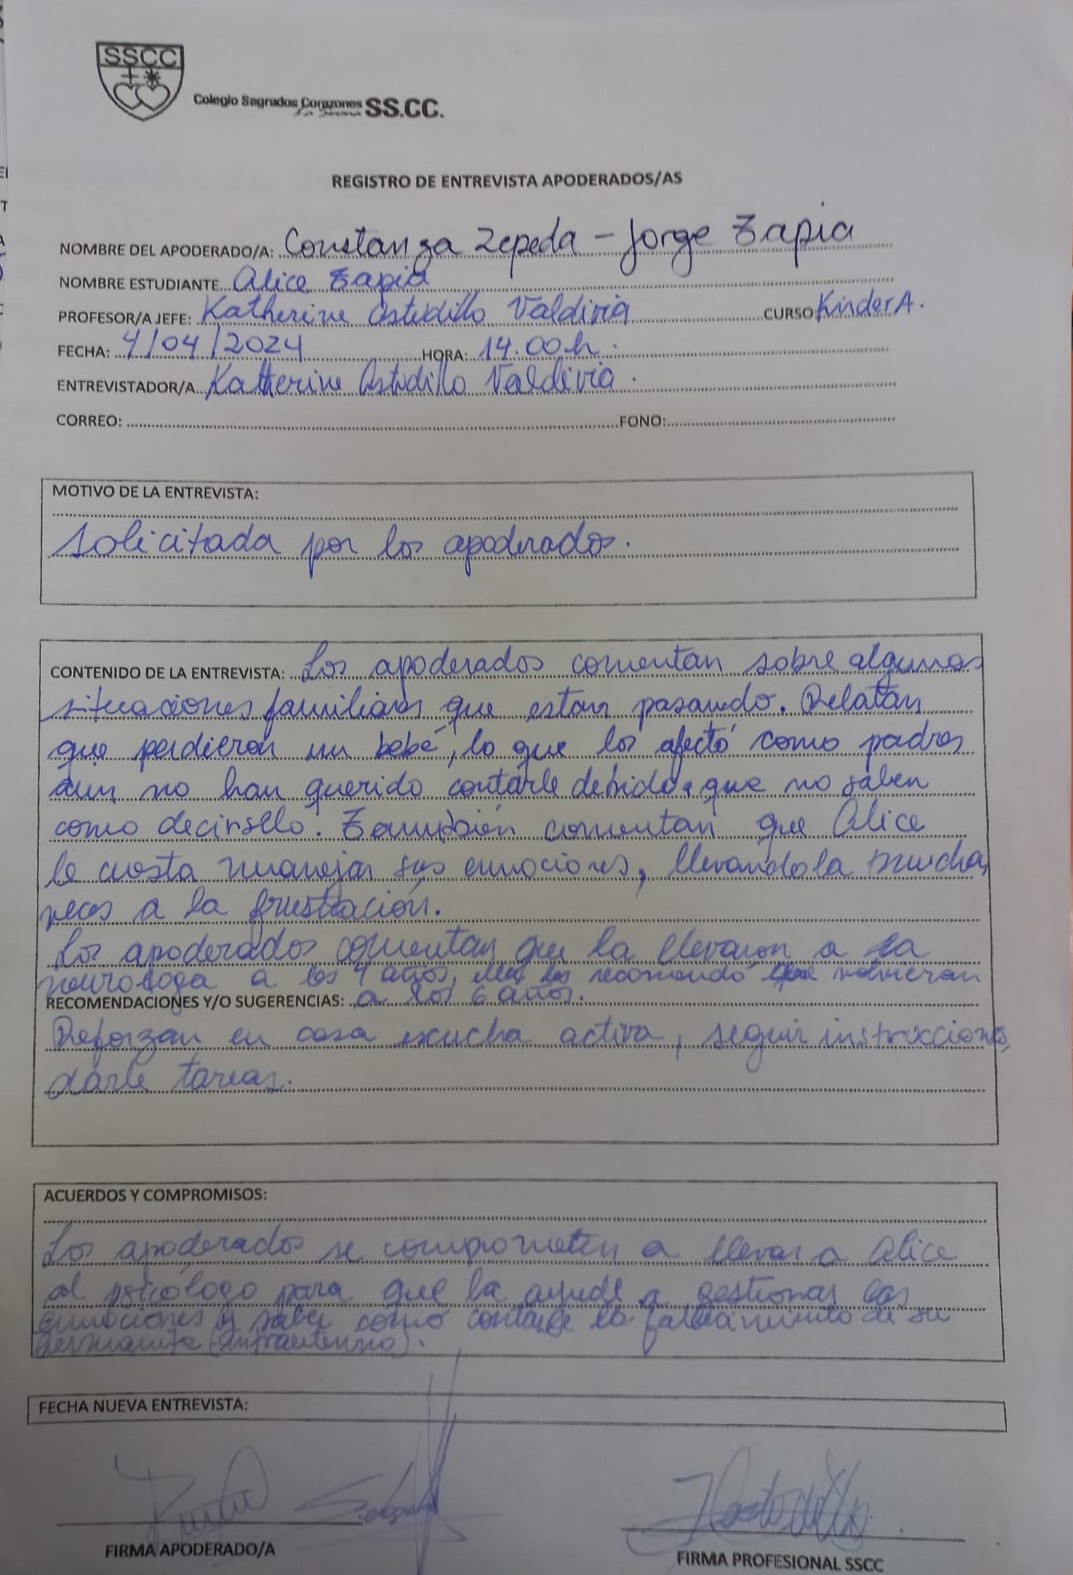 SSCC
Colegio Sagrados Corazones SS.CC.
La Serena
REGISTRO DE ENTREVISTA APODERADOS/AS
NOMBRE DEL APODERADO/A: Constanza Zepeda - Jorge Tapia
NOMBRE ESTUDIANTE Alice Tapia
PROFESOR/A JEFE: Katherine Astudillo Valdivia CURSO: Kinder A.
FECHA: 4/04/2024 HORA: 14.00 h.
ENTREVISTADOR/A Katherine Astudillo Valdivia.
CORREO: FONO:
MOTIVO DE LA ENTREVISTA:
Solicitada por los apoderados.
CONTENIDO DE LA ENTREVISTA: Los apoderados comentan sobre algunas
situaciones familiares que estan pasando. Relatan
que perdieron un bebé, lo que los afectó como padres
aun no han querido contarle debido a que no saben
como decirselo. También comentan que Alice
le cuesta manejar sus emociones, llevandola muchas
veces a la frustración.
Los apoderados comentan que la llevaron a la
neurologa a los 4 años, ella les recomendó que volvieran
RECOMENDACIONES Y/O SUGERENCIAS: a los 6 años.
Reforzar en casa escucha activa, seguir instrucciones,
darle tareas.
ACUERDOS Y COMPROMISOS:
Los apoderados se comprometen a llevar a Alice
al psicólogo para que la ayude a gestionar las
emociones y saber como contarle el fallecimiento de su
hermanita (intrauterino).
FECHA NUEVA ENTREVISTA:
FIRMA APODERADO/A
FIRMA PROFESIONAL SSCC